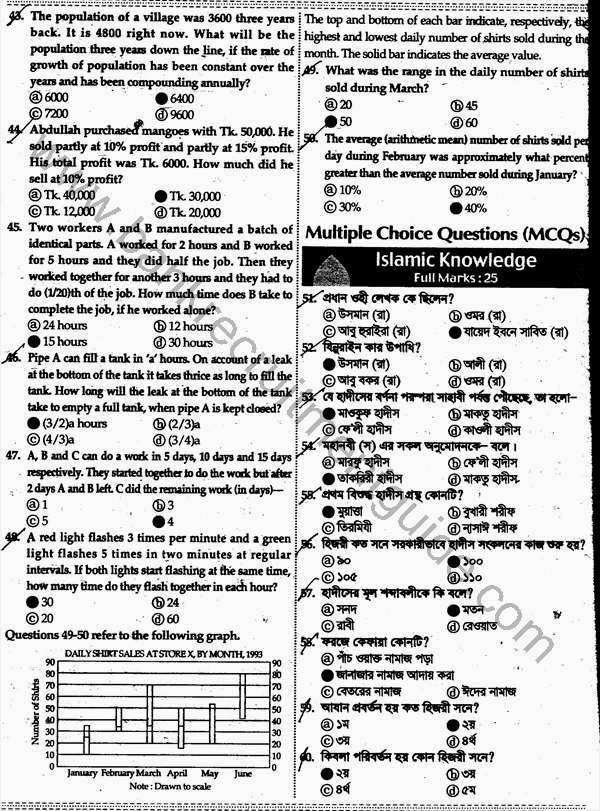 43. The population of a village was 3600 three years
back. It is 4800 right now. What will be the
population three years down the line, if the rate of
growth of population has been constant over the
years and has been compounding annually?
ⓐ 6000 ● 6400
ⓒ 7200 ⓓ 9600
44. Abdullah purchased mangoes with Tk. 50,000. He
sold partly at 10% profit and partly at 15% profit.
His total profit was Tk. 6000. How much did he
sell at 10% profit?
ⓐ Tk. 40,000 ● Tk. 30,000
ⓒ Tk. 12,000 ⓓ Tk. 20,000
45. Two workers A and B manufactured a batch of
identical parts. A worked for 2 hours and B worked
for 5 hours and they did half the job. Then they
worked together for another 3 hours and they had to
do (1/20)th of the job. How much time does B take to
complete the job, if he worked alone?
ⓐ 24 hours ⓑ 12 hours
● 15 hours ⓓ 30 hours
46. Pipe A can fill a tank in 'a' hours. On account of a leak
at the bottom of the tank it takes thrice as long to fill the
tank. How long will the leak at the bottom of the tank
take to empty a full tank, when pipe A is kept closed?
● (3/2)a hours ⓑ (2/3)a
ⓒ (4/3)a ⓓ (3/4)a
47. A, B and C can do a work in 5 days, 10 days and 15 days
respectively. They started together to do the work but after
2 days A and B left. C did the remaining work (in days)—
ⓐ 1 ⓑ 3
ⓒ 5 ● 4
48. A red light flashes 3 times per minute and a green
light flashes 5 times in two minutes at regular
intervals. If both lights start flashing at the same time,
how many time do they flash together in each hour?
● 30 ⓑ 24
ⓒ 20 ⓓ 60
Questions 49-50 refer to the following graph.
DAILY SHIRT SALES AT STORE X, BY MONTH, 1993
Number of Shirts
90 90
80 80
70 70
60 60
50 50
40 40
30 30
20 20
10 10
0 0
January February March April May June
Note : Drawn to scale
The top and bottom of each bar indicate, respectively, the
highest and lowest daily number of shirts sold during the
month. The solid bar indicates the average value.
49. What was the range in the daily number of shirts
sold during March?
ⓐ 20 ⓑ 45
● 50 ⓓ 60
50. The average (arithmetic mean) number of shirts sold per
day during February was approximately what percent
greater than the average number sold during January?
ⓐ 10% ⓑ 20%
ⓒ 30% ● 40%
Multiple Choice Questions (MCQs)
Islamic Knowledge
Full Marks : 25
51. প্রধান ওহী লেখক কে ছিলেন?
ⓐ উসমান (রা) ⓑ ওমর (রা)
ⓒ আবু হুরাইরা (রা) ● যায়েদ ইবনে সাবিত (রা)
52. যিন্নুরাইন কার উপাধি?
● উসমান (রা) ⓑ আলী (রা)
ⓒ আবু বকর (রা) ⓓ ওমর (রা)
53. যে হাদীসের বর্ণনা পরম্পরা সাহাবী পর্যন্ত পৌঁছেছে, তা হলো—
● মাওকুফ হাদীস ⓑ মাকতু হাদীস
ⓒ ফে'লী হাদীস ⓓ কাওলী হাদীস
54. মহানবী (স) এর সকল অনুমোদনকে– বলে।
ⓐ মারফু হাদীস ⓑ ফে'লী হাদীস
● তাকরিরী হাদীস ⓓ মাকতু হাদীস
55. প্রথম বিশুদ্ধ হাদীস গ্রন্থ কোনটি?
● মুয়াত্তা ⓑ বুখারী শরীফ
ⓒ তিরমিযী ⓓ নাসাঈ শরীফ
56. হিজরী কত সনে সরকারীভাবে হাদীস সংকলনের কাজ শুরু হয়?
ⓐ ৯০ ● ১০০
ⓒ ১০৫ ⓓ ১১০
57. হাদীসের মূল শব্দাবলীকে কি বলে?
ⓐ সনদ ● মতন
ⓒ রাবী ⓓ রেওয়াত
58. ফরজে কেফায়া কোনটি?
ⓐ পাঁচ ওয়াক্ত নামাজ পড়া
● জানাজার নামাজ আদায় করা
ⓒ বেতরের নামাজ ⓓ ঈদের নামাজ
59. আযান প্রবর্তন হয় কত হিজরী সনে?
ⓐ ১ম ● ২য়
ⓒ ৩য় ⓓ ৪র্থ
60. কিবলা পরিবর্তন হয় কোন হিজরী সনে?
● ২য় ⓑ ৩য়
ⓒ ৪র্থ ⓓ ৫ম
www.bankrecruitmentguide.com